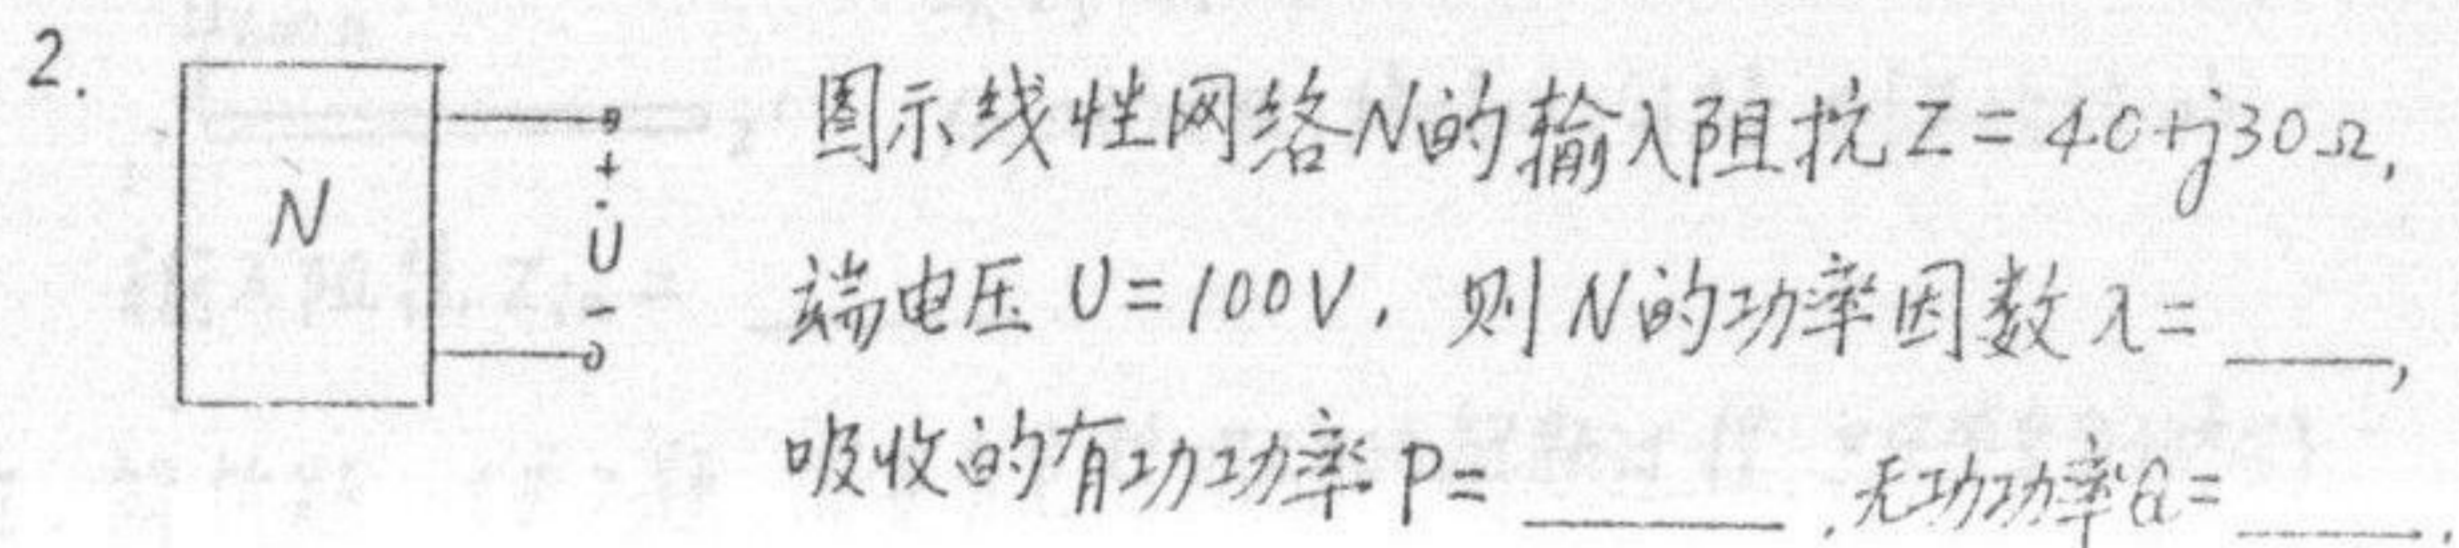 2.
N
+
U̇
-
图示线性网络N的输入阻抗 Z = 40+j30Ω,
端电压 U=100V, 则N的功率因数 λ= ____,
吸收的有功功率 P= ____, 无功功率Q= ____.